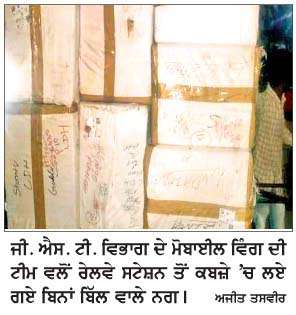 ਜੀ. ਐਸ. ਟੀ. ਵਿਭਾਗ ਦੇ ਮੋਬਾਈਲ ਵਿੰਗ ਦੀ
ਟੀਮ ਵਲੋਂ ਰੇਲਵੇ ਸਟੇਸ਼ਨ ਤੋਂ ਕਬਜ਼ੇ 'ਚ ਲਏ
ਗਏ ਬਿਨਾਂ ਬਿੱਲ ਵਾਲੇ ਨਗ। ਅਜੀਤ ਤਸਵੀਰ